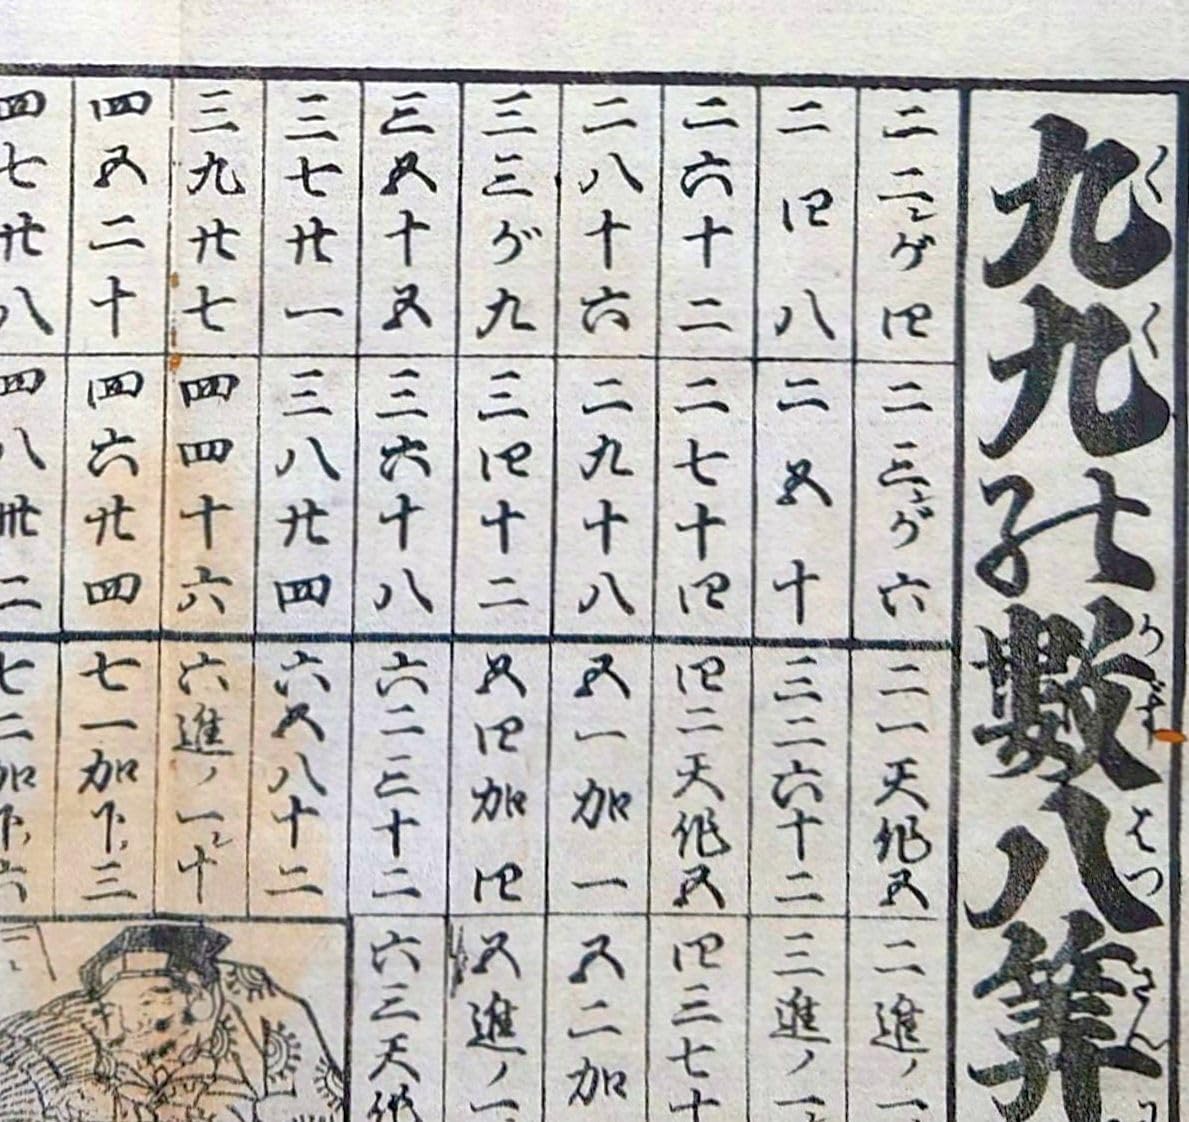 九九の數八算
くく かず はつさん
二二ガ四
二三ガ六
二四八
二五十
二六十二
二七十四
二八十六
二九十八
三三ガ九
三四十二
三五十五
三六十八
三七廿一
三八廿四
三九廿七
四四十六
四五二十
四六廿四
四七廿八
四八卅二
二一天作五
二進ノ一
三二六十二
三進ノ一
四二天作五
四三七十
五一加一
五二加
五四加四
五進ノ一
六二三十二
六三天作
六五八十二
六進ノ一十
七一加下三
七二加下六